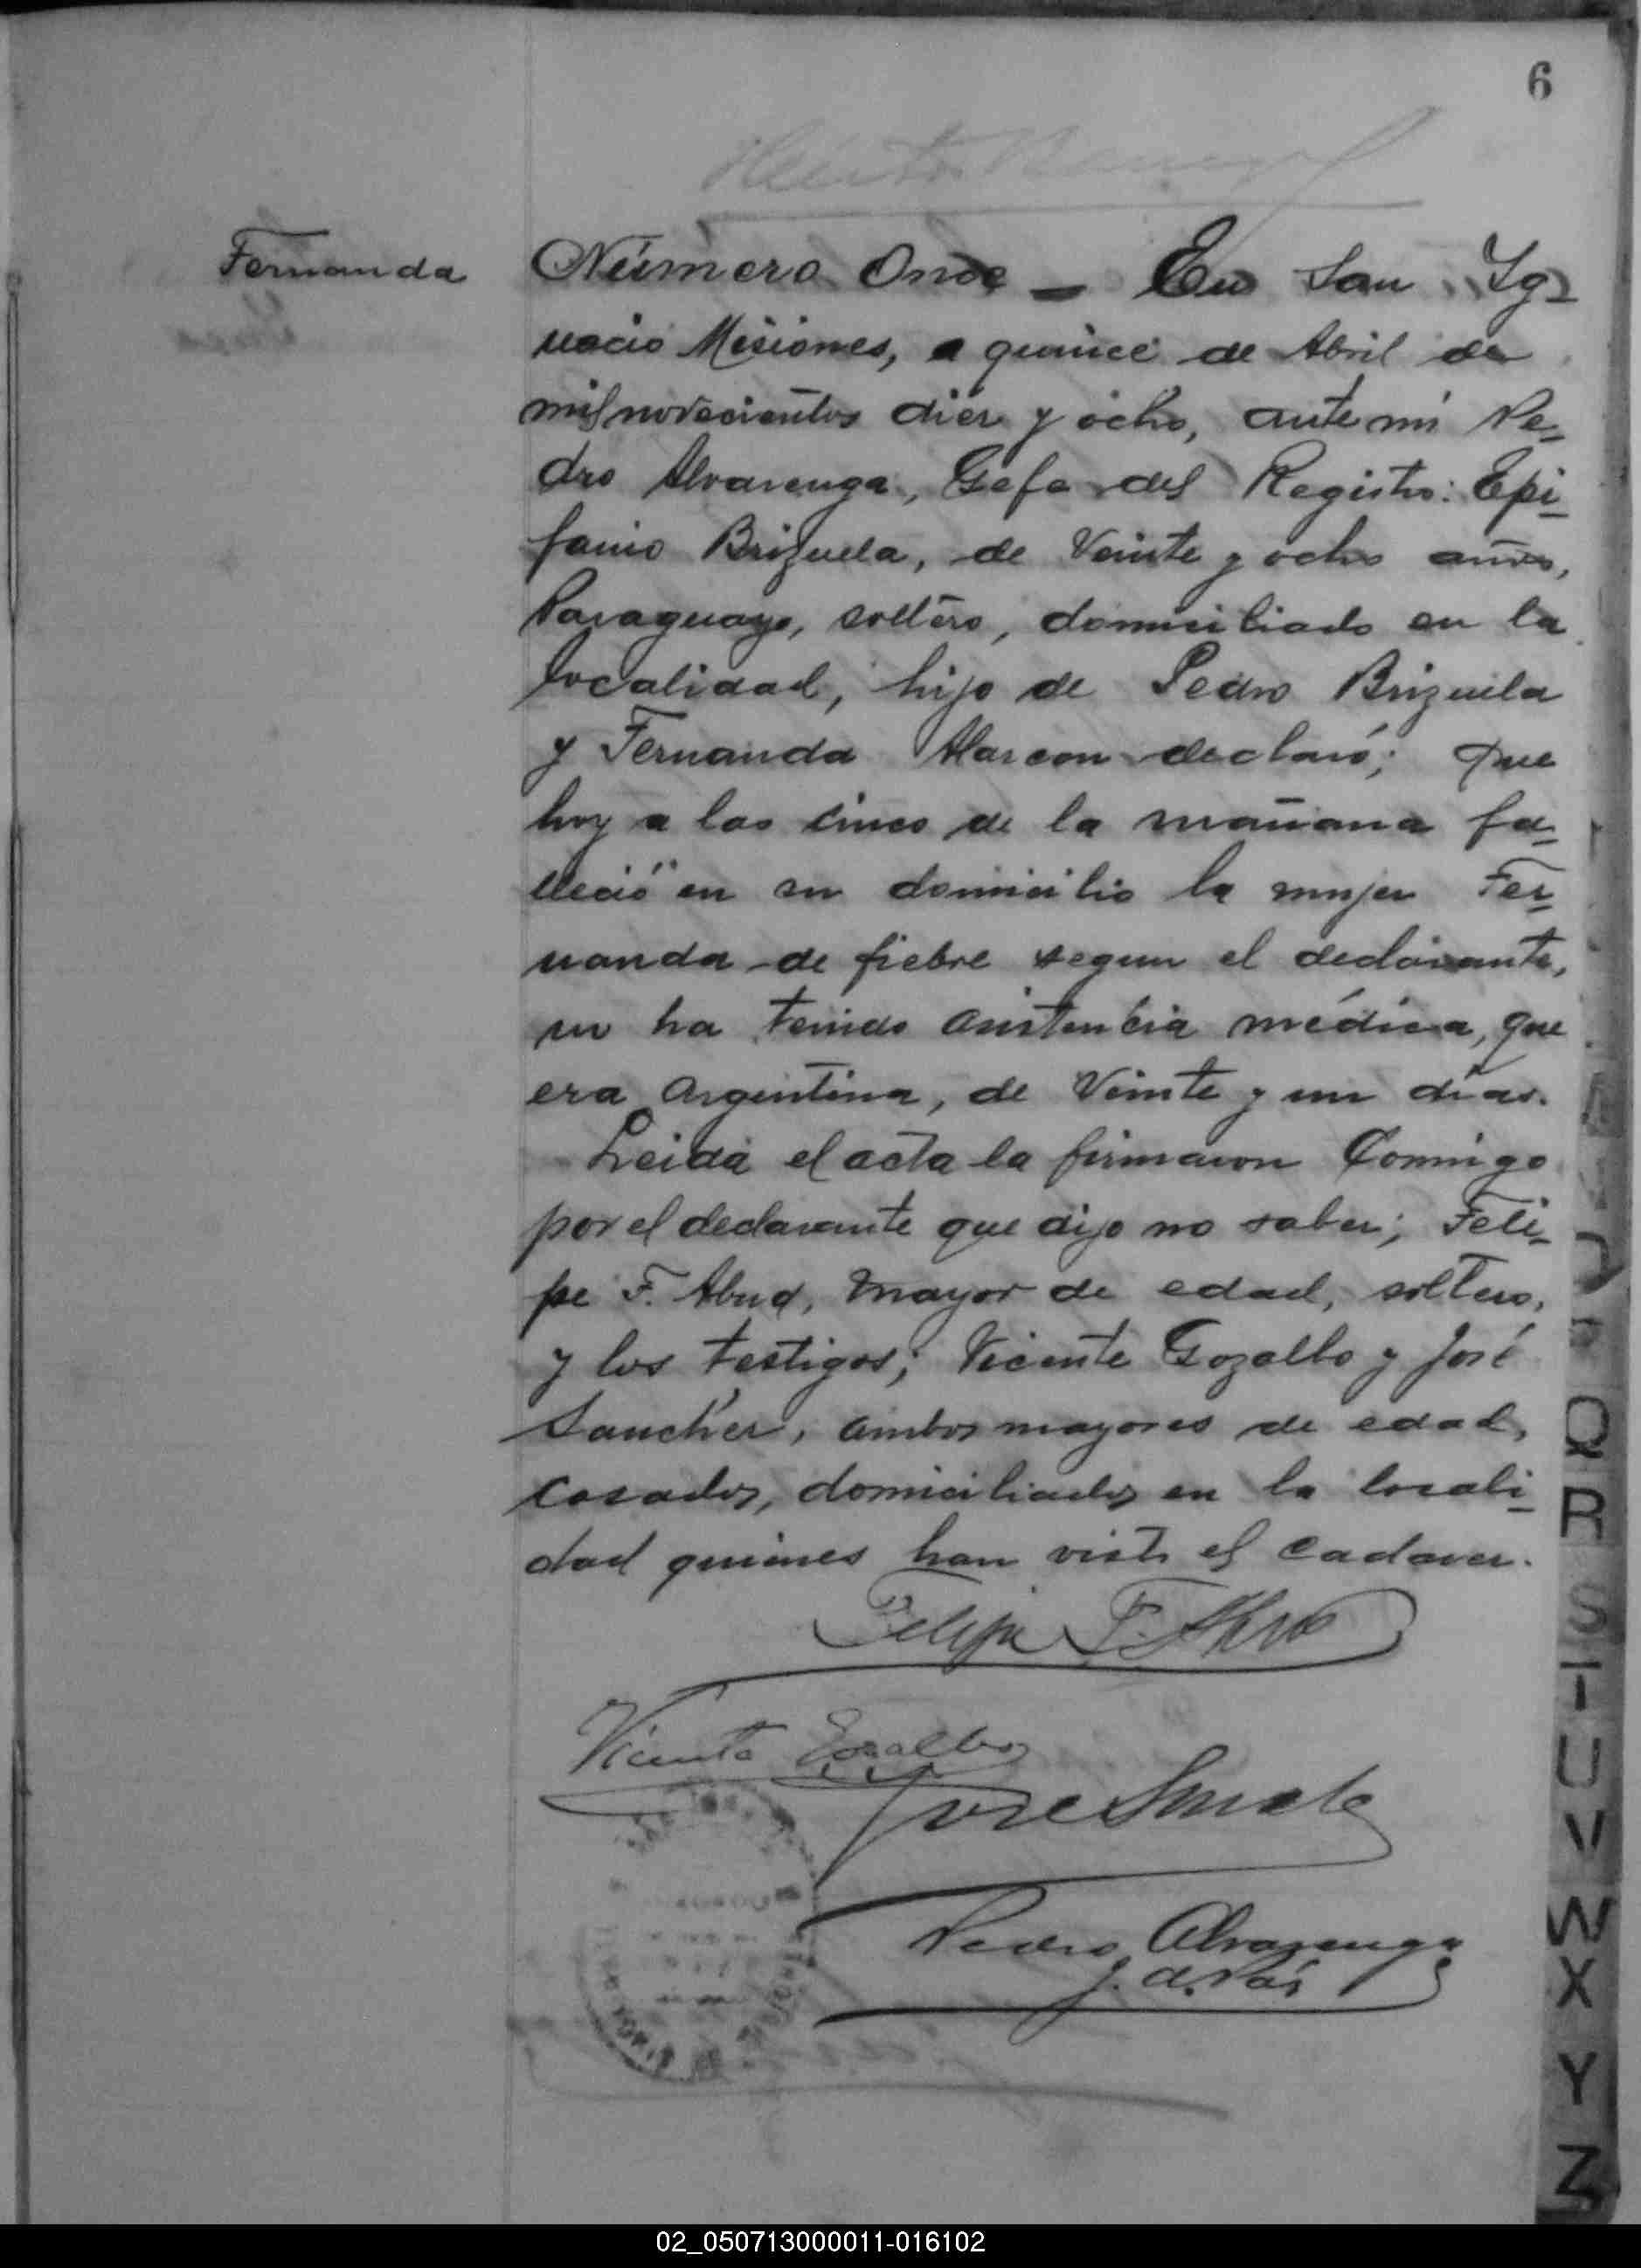 6
Fernanda
Número Once — En San Ig-
nacio Misiones, a quince de Abril de
mil novecientos diez y ocho, ante mi Pe-
dro Alvarenga, Gefe del Registro: Epi-
fanio Brizuela, de Veinte y ocho años,
Paraguayo, soltero, domiciliado en la
localidad, hijo de Pedro Brizuela
y Fernanda Alarcon declaró; Que
hoy a las cinco de la mañana fa-
lleció en su domicilio la mujer Fer-
nanda de fiebre segun el declarante,
no ha tenido asistencia médica, que
era Argentina, de Veinte y un dias.
Leida el acta la firmaron Comigo
por el declarante que dijo no saber; Feli-
pe F. Abud, mayor de edad, soltero,
y los testigos; Vicente Gozalbo y José
Sanchez, ambos mayores de edad,
casados, domiciliados en la locali-
dad quienes han visto el cadaver.
Felipe F. Abud
Vicente Gozalbo
Jose
Pedro Alvarenga
J. de Paz
Q
R
S
T
U
V
W
X
Y
Z
02_050713000011-016102